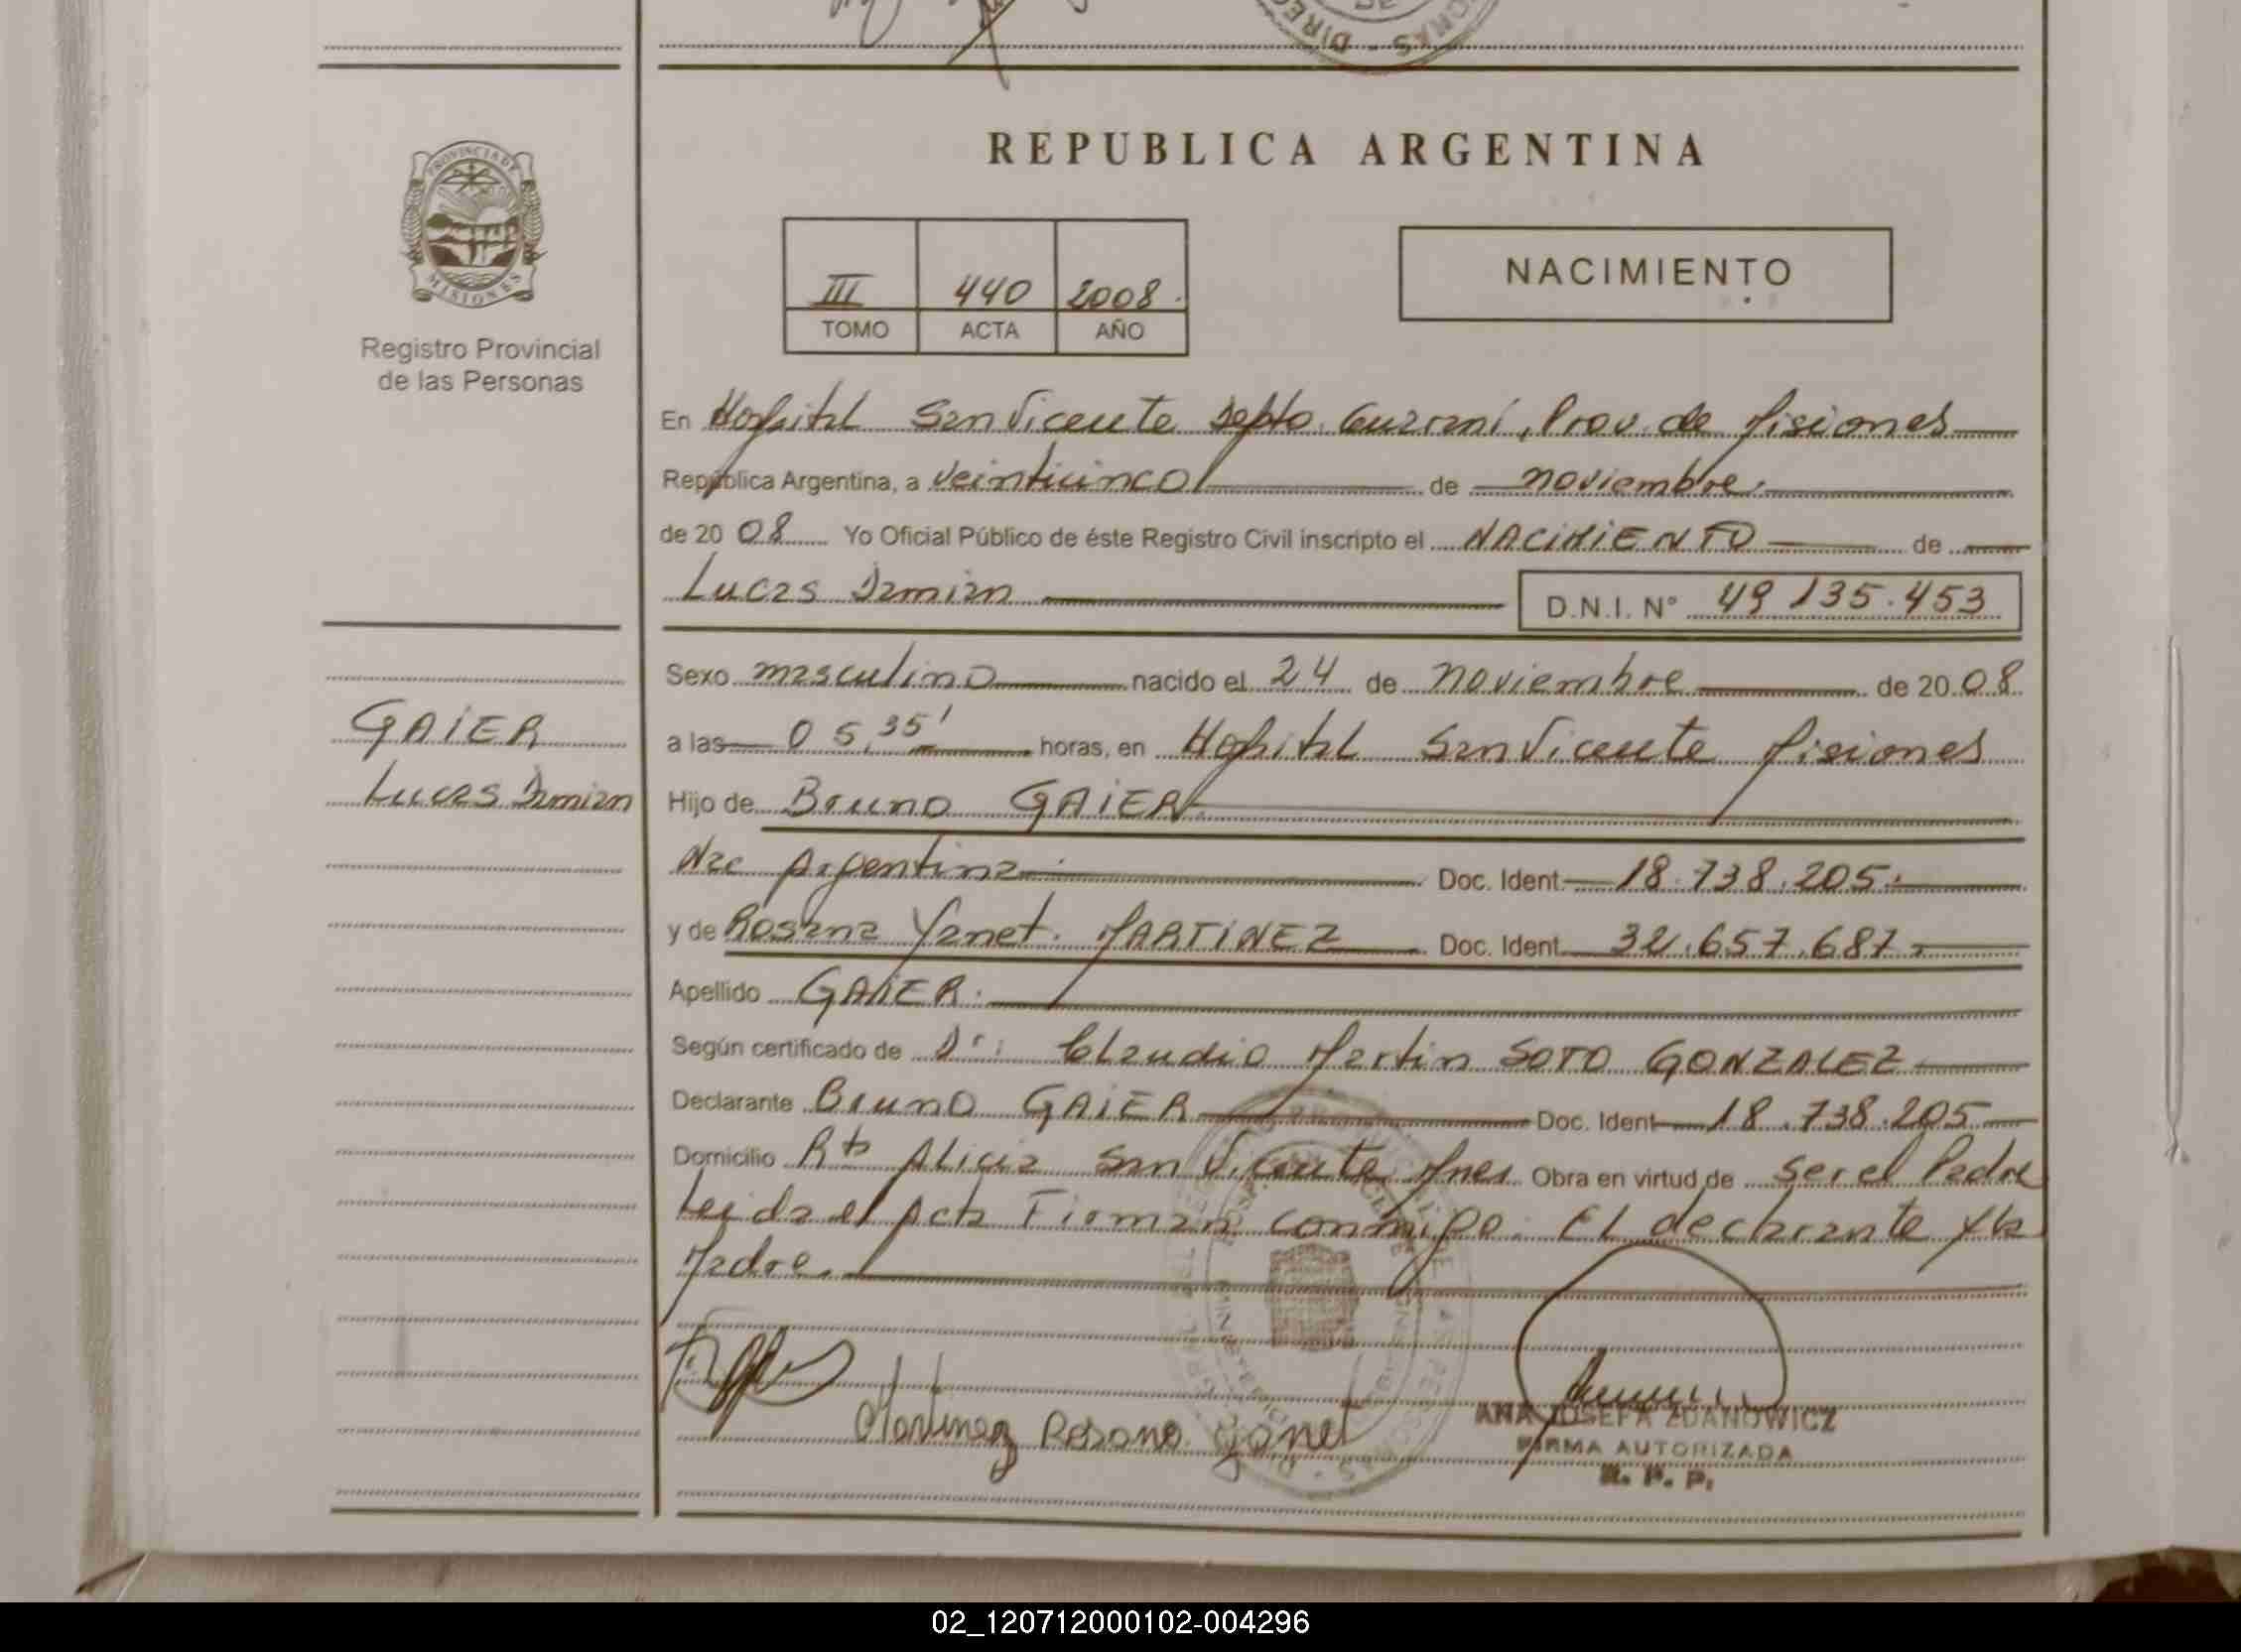 REPUBLICA ARGENTINA
PROVINCIA DE
MISIONES
Registro Provincial
de las Personas
III 440 2008.
TOMO ACTA AÑO
NACIMIENTO
En Hospital San Vicente Depto. Guaraní, Prov. de Misiones
República Argentina, a veinticinco de noviembre.
de 20 08 Yo Oficial Público de éste Registro Civil inscripto el NACIMIENTO de
Lucas Damian D.N.I. Nº 49 135.453
Sexo masculino nacido el 24 de noviembre de 20 08
a las 05,35' horas, en Hospital San Vicente Misiones
GAIER
Lucas Damian
Hijo de Bruno GAIER.
Nac Argentina Doc. Ident. 18.738.205.
y de Rosana Yanet. MARTINEZ Doc. Ident. 32.657.687.
Apellido GAIER.
Según certificado de Dr: Claudio Martin SOTO GONZALEZ
Declarante Bruno GAIER Doc. Ident 18.738.205
Domicilio Rta Alicia San Vicente Mnes Obra en virtud de Ser el Padre
Leida el Acta Firman conmigo. El declarante y la
Madre.
Martinez Rosana Yanet
ANA JOSEFA ZDANOWICZ
FIRMA AUTORIZADA
R. P. P.
02_120712000102-004296